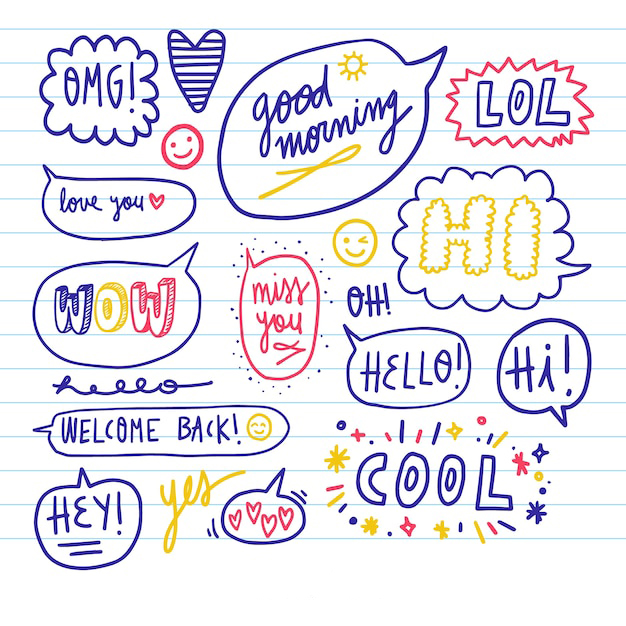 OMG!
good
morning
LOL
love you
HI
WOW
miss
you
OH!
HELLO!
Hi!
hello
WELCOME BACK!
COOL
HEY!
yes